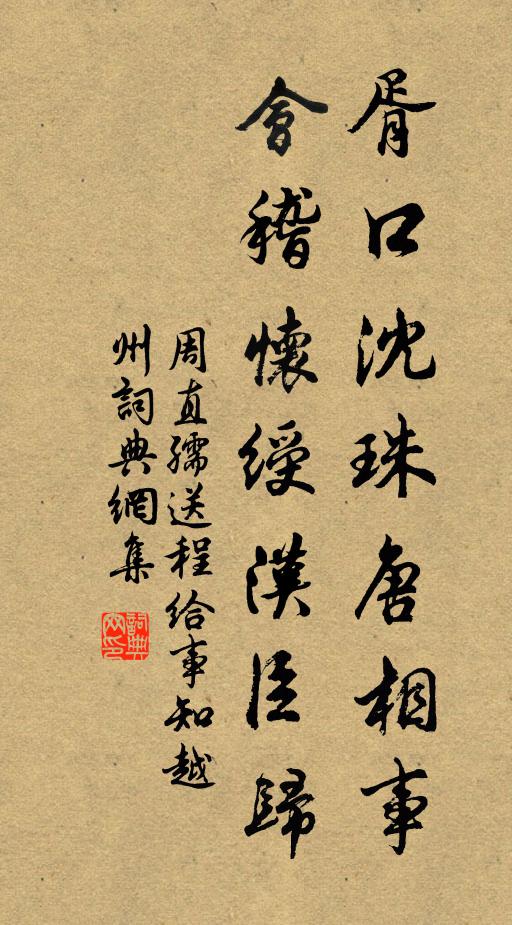 胥口沈珠唐相事
會稽懷綬漢臣歸
周直孺送程給事知越
州詞典網集
詞典网印